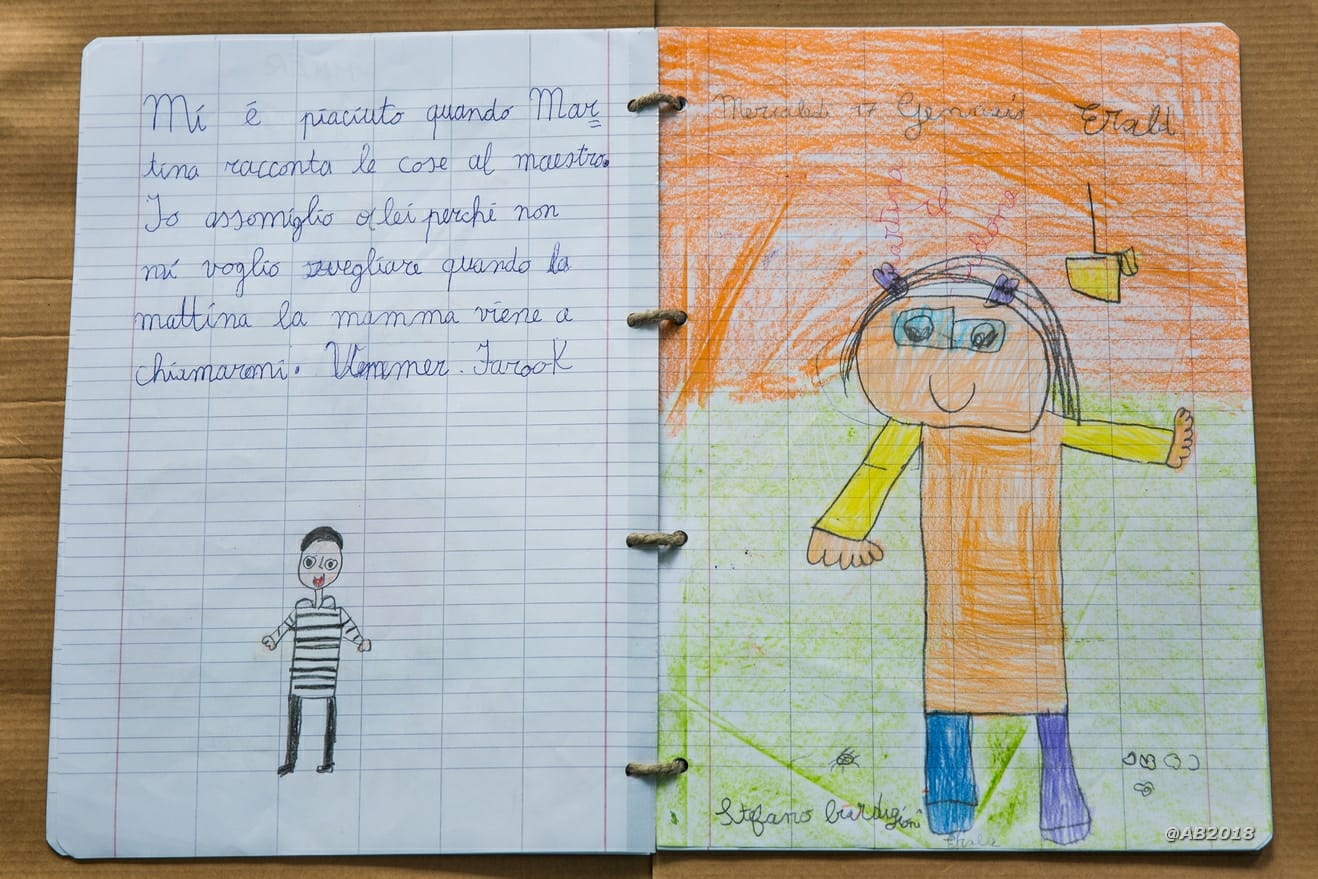 Mi è piaciuto quando Mar
tina racconta le cose al maestro.
Io assomiglio a lei perchè non
mi voglio svegliare quando la
mattina la mamma viene a
chiamarmi. Ummer. Farook
Mercoledì 17 Gennaio Erald
Martina
Stefano Bordiglioni
@AB2018